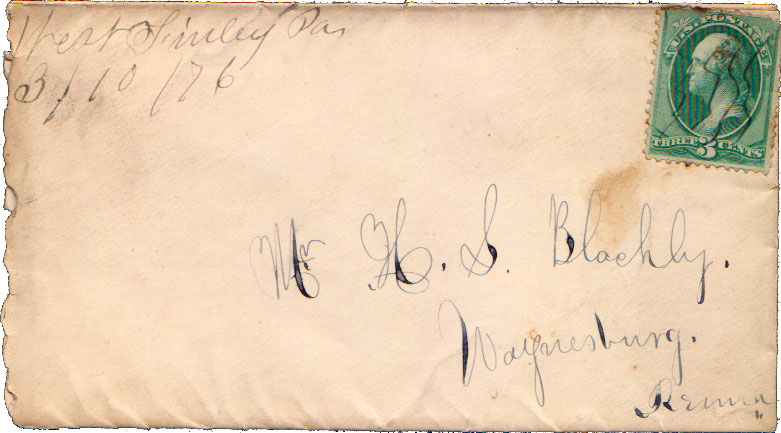 West Finley Pa
3/10/76
U.S. POSTAGE
THREE 3 CENTS
Mr H. S. Blachly.
Waynesburg.
Penna